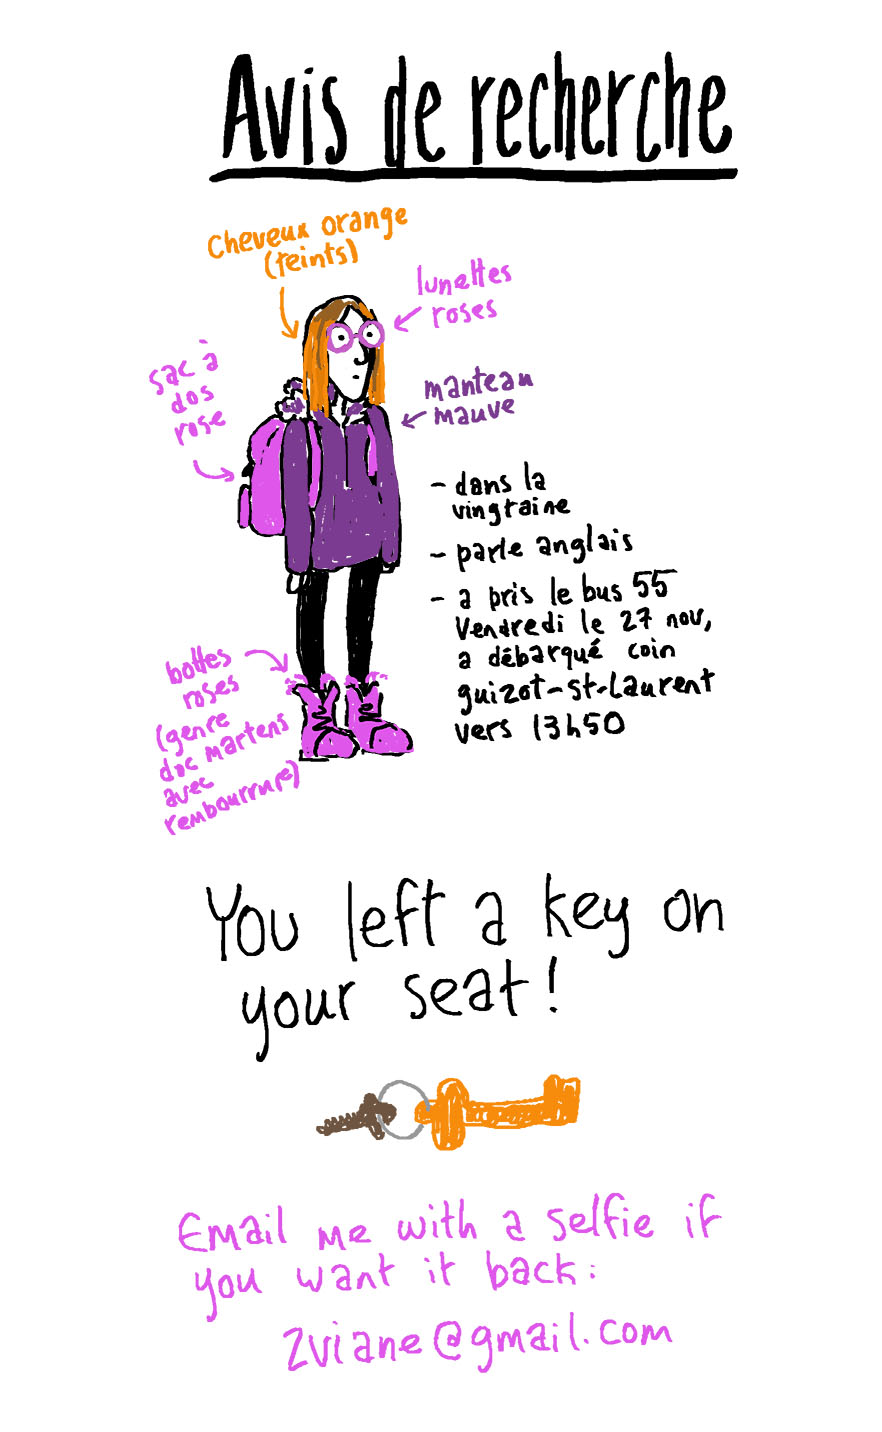 Avis de recherche
cheveux orange
(teints)
lunettes
roses
sac à
dos
rose
manteau
mauve
- dans la
vingtaine
- parle anglais
- a pris le bus 55
Vendredi le 27 nov,
a débarqué coin
guizot-st-Laurent
vers 13h50
bottes
roses
(genre
doc martens
avec
rembourrure)
You left a key on
your seat!
Email me with a selfie if
you want it back:
zviane@gmail.com